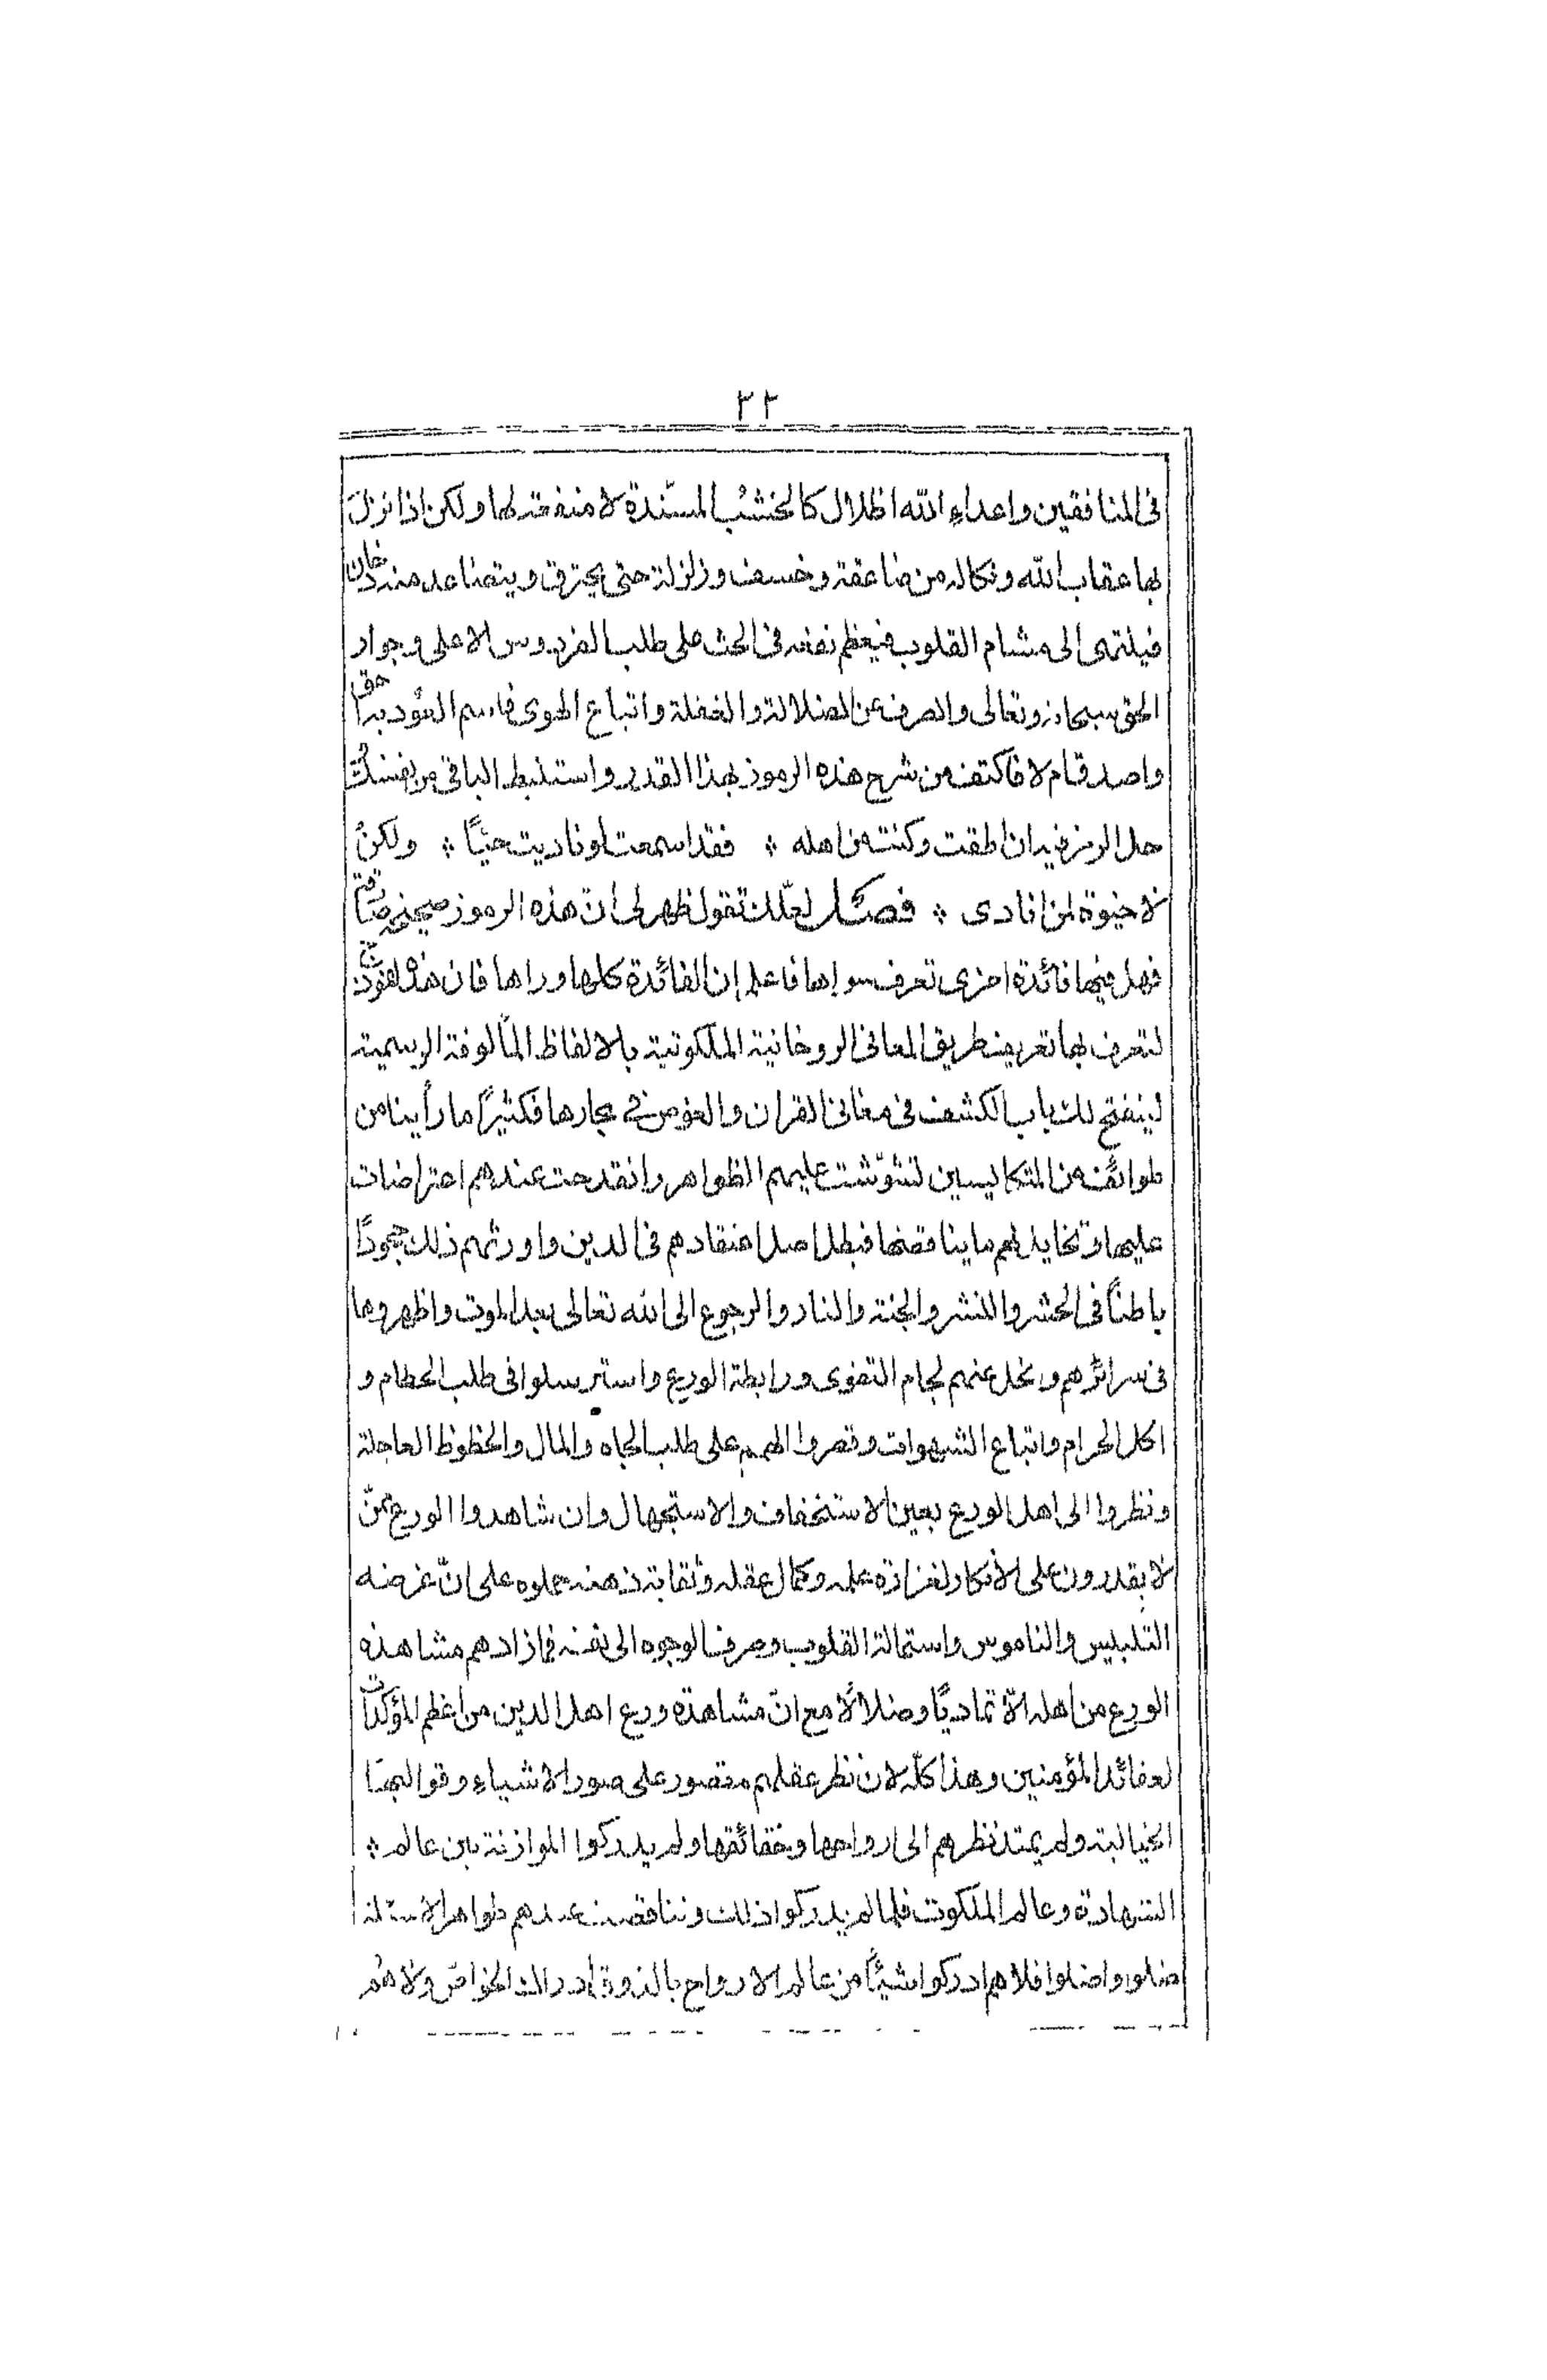 ٢٢
في المنافقين واعداء الله اظلال كالخشب المسنّدة لا منفعة لها ولكن اذا نزل
بها عقاب الله ونكاله من صاعقة وخسف وزلزلة حتى يحترق ويتصاعد منه دخان
فيلتهى الى مشام القلوب فيعظم نفعه في الحث على طلب الفردوس الاعلى وجوار
الحق سبحانه وتعالى والصرف عن الضلالة والغفلة واتباع الهوى فاسم العود به احق
واصدق ام لا فاكتف من شرح هذه الرموز بهذا القدر واستنبط الباقي من نفسك
حل الرمز فيه ان اطقت وكنت من اهله * فقد اسمعت لو ناديت حيّاً * ولكن
لا حيوة لمن انادى * فصل لعلّك تقول ظهر لي انّ هذه الرموز صحيحة صادقة
فهل فيها فائدة اخرى تعرف سواها فاعلم ان الفائدة كلها وراها فان هذه انموذج
لتعرف بها تعريف طريق المعاني الروحانية الملكوتية بالالفاظ المألوفة الرسمية
لينفتح لك باب الكشف في معاني القران والغوص في بحارها فكثيراً ما رأينا من
طوائف من المتكايسين تشوّشت عليهم الظواهر وانقدحت عندهم اعتراضات
عليها وتخايل لهم ما يناقضها فبطل اصل اعتقادهم في الدين واورثهم ذلك جحوداً
باطناً في الحشر والنشر والجنة والنار والرجوع الى الله تعالى بعد الموت واظهروها
في سرائرهم وانحل عنهم لجام التقوى ورابطة الورع واسترسلوا في طلب الحطام و
اكل الحرام واتباع الشهوات وقصروا الهمم على طلب الجاه والمال والحظوظ العاجلة
ونظروا الى اهل الورع بعين الاستخفاف والاستجهال وان شاهدوا الورع ممّن
لا يقدرون على الانكار لغزارة علمه وكمال عقله وثقابة ذهنه حملوه على انّ غرضه
التلبيس والناموس واستمالة القلوب وصرف الوجوه الى نفسه فما زادهم مشاهدة
الورع من اهله الا تمادياً وضلالاً مع انّ مشاهدة ورع اهل الدين من اعظم المؤكدات
لعقائد المؤمنين وهذا كلّه لان نظر عقلهم مقصور على صور الاشياء وقوالبها
الخيالية ولم يمتد نظرهم الى ارواحها وحقائقها ولم يدركوا الموازنة بين عالم *
الشهادة وعالم الملكوت فلما لم يدركوا ذلك وتناقضت عندهم ظواهر الاسئلة
ضلوا واضلوا فلا هم ادركوا شيئاً من عالم الارواح بالذوق ادراك الخواصّ ولا هم